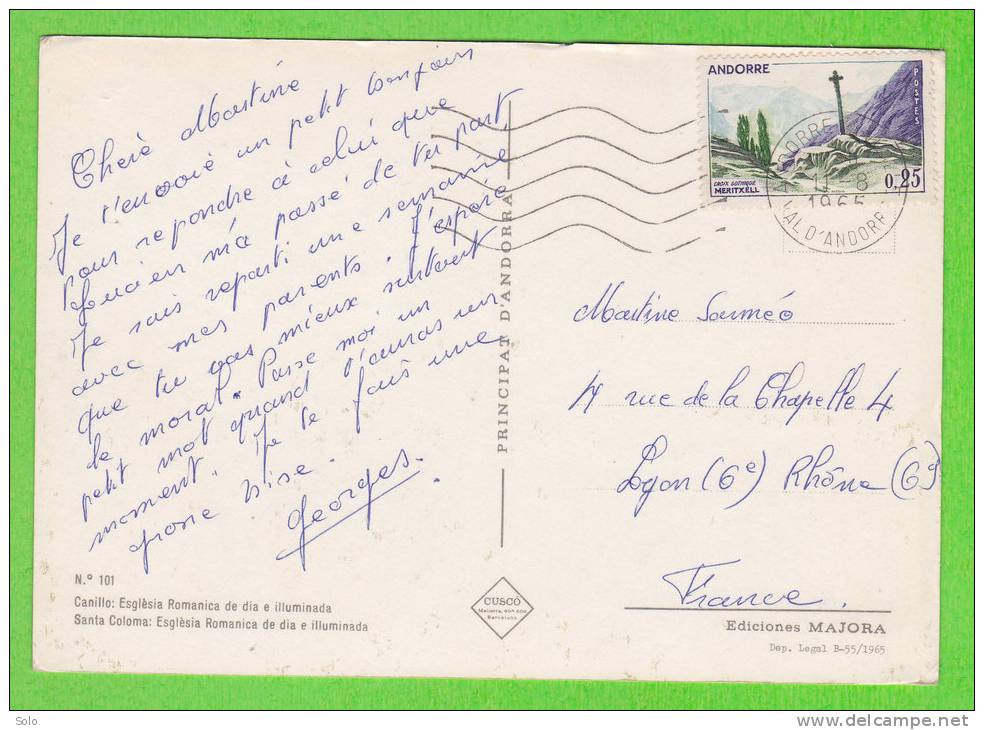 Chère Martine
Je t'envoie un petit bonjour
pour repondre à celui que
Lucien m'a passé de ta part.
Je suis reparti une semaine
avec mes parents. J'espère
que tu vas mieux surtout
le moral. Passe moi un
petit mot quand t'auras un
moment. Je te fais une
grosse bise.
Georges.
N.º 101
Canillo: Esglèsia Romanica de dia e illuminada
Santa Coloma: Esglèsia Romanica de dia e illuminada
PRINCIPAT D'ANDORRA
CUSCÓ
Mallorca,
Barcelona
ANDORRE
POSTES
CROIX GOTHIQUE
MERITXELL
0,25
8
1965
VAL D'ANDORRE
Martine Sauméo
rue de la Chapelle 4
Lyon (6e) Rhône (69
France.
Ediciones MAJORA
Dep. Legal B-55/1965
Solo
http://www.delcampe.net